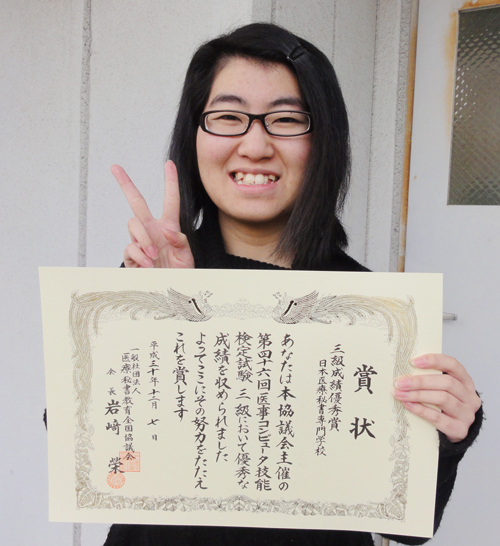 賞状
三級成績優秀賞
日本医療秘書専門学校
あなたは本協議会主催の
第四十六回医事コンピュータ技能
検定試験 三級において優秀な
成績を収められました
よってここにその努力をたたえ
これを賞します
平成三十年十二月七日
一般社団法人
医療秘書教育全国協議会
会長 岩﨑 榮